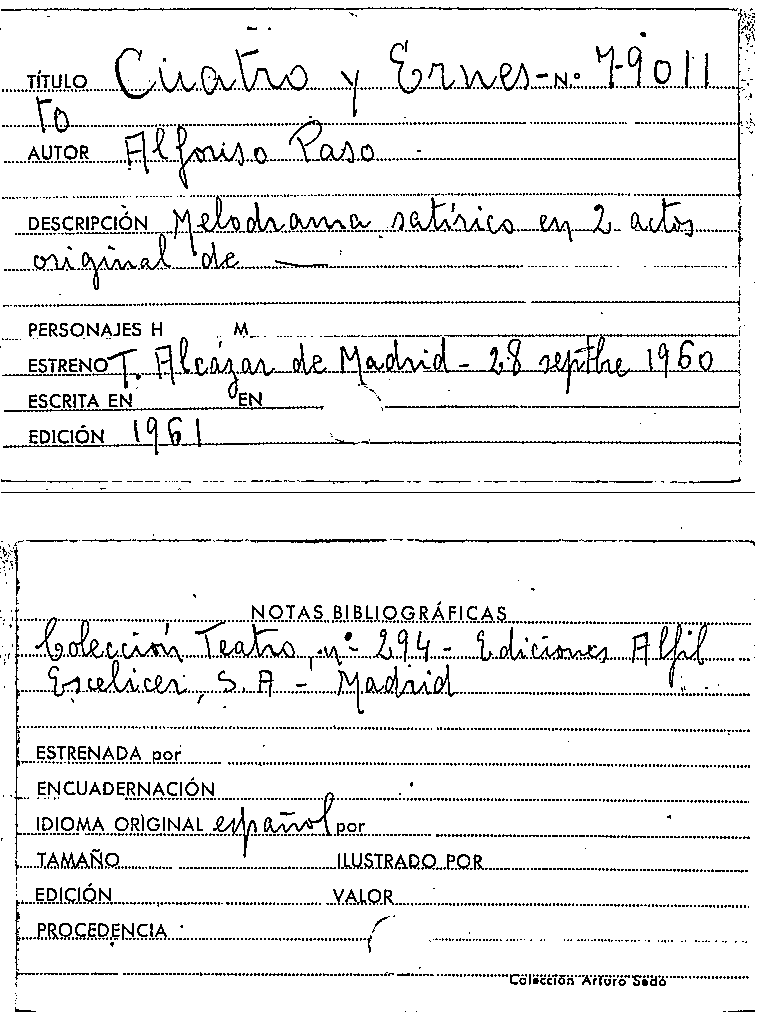 TÍTULO Cuatro y Ernes- N.º 7-9011
to
AUTOR Alfonso Paso
DESCRIPCIÓN Melodrama satírico en 2 actos
original de —
PERSONAJES H M
ESTRENO T. Alcázar de Madrid - 28 septbre 1960
ESCRITA EN EN
EDICIÓN 1961
NOTAS BIBLIOGRÁFICAS
Colección Teatro, nº 294 - Ediciones Alfil
Escelicer, S.A - Madrid
ESTRENADA por
ENCUADERNACIÓN
IDIOMA ORIGINAL español por
TAMAÑO ILUSTRADO POR
EDICIÓN VALOR
PROCEDENCIA
Colección Arturo Sedó